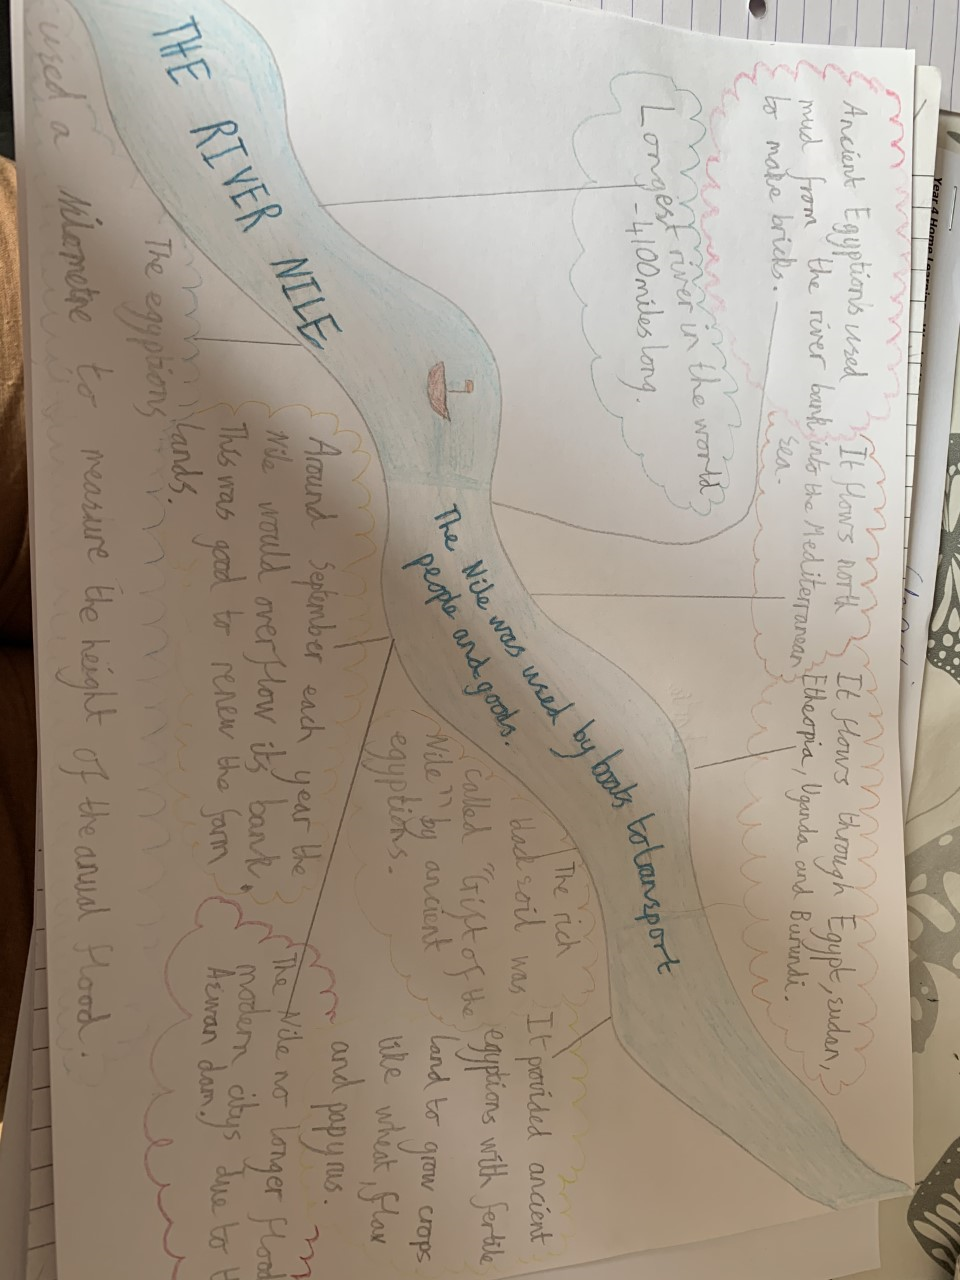 THE RIVER NILE
The Nile was used by boats to transport
people and goods.
Ancient Egyption's used
mud from the river bank
to make bricks.
Longest river in the world
- 4100 miles long.
It flows north
into the Mediterranean
sea.
It flows through Egypt, sudan,
Etheopia, Uganda and Burundi.
The rich
black soil was
called "Gift of the
Nile" by ancient
egyptions.
It provided ancient
egyptions with fertile
land to grow crops
like wheat, flax
and papyrus.
Around September each year the
Nile would overflow its bank.
This was good to renew the farm
lands.
The Nile no longer flood
modern citys due to
Aswan dam.
The egyptions
used a nilometre to measure the height of the anual flood.
Year 4 Home